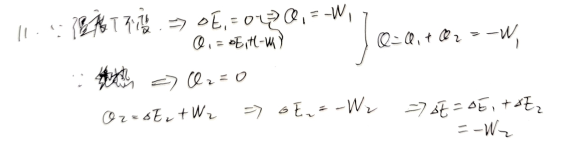 11. ∵ 温度T不变 ⇒ ΔE₁=0 ⇒ Q₁=-W₁
Q₁=ΔE₁+(-W₁) } Q=Q₁+Q₂=-W₁
∵ 绝热 ⇒ Q₂=0
Q₂=ΔE₂+W₂ ⇒ ΔE₂=-W₂ ⇒ ΔE=ΔE₁+ΔE₂
=-W₂